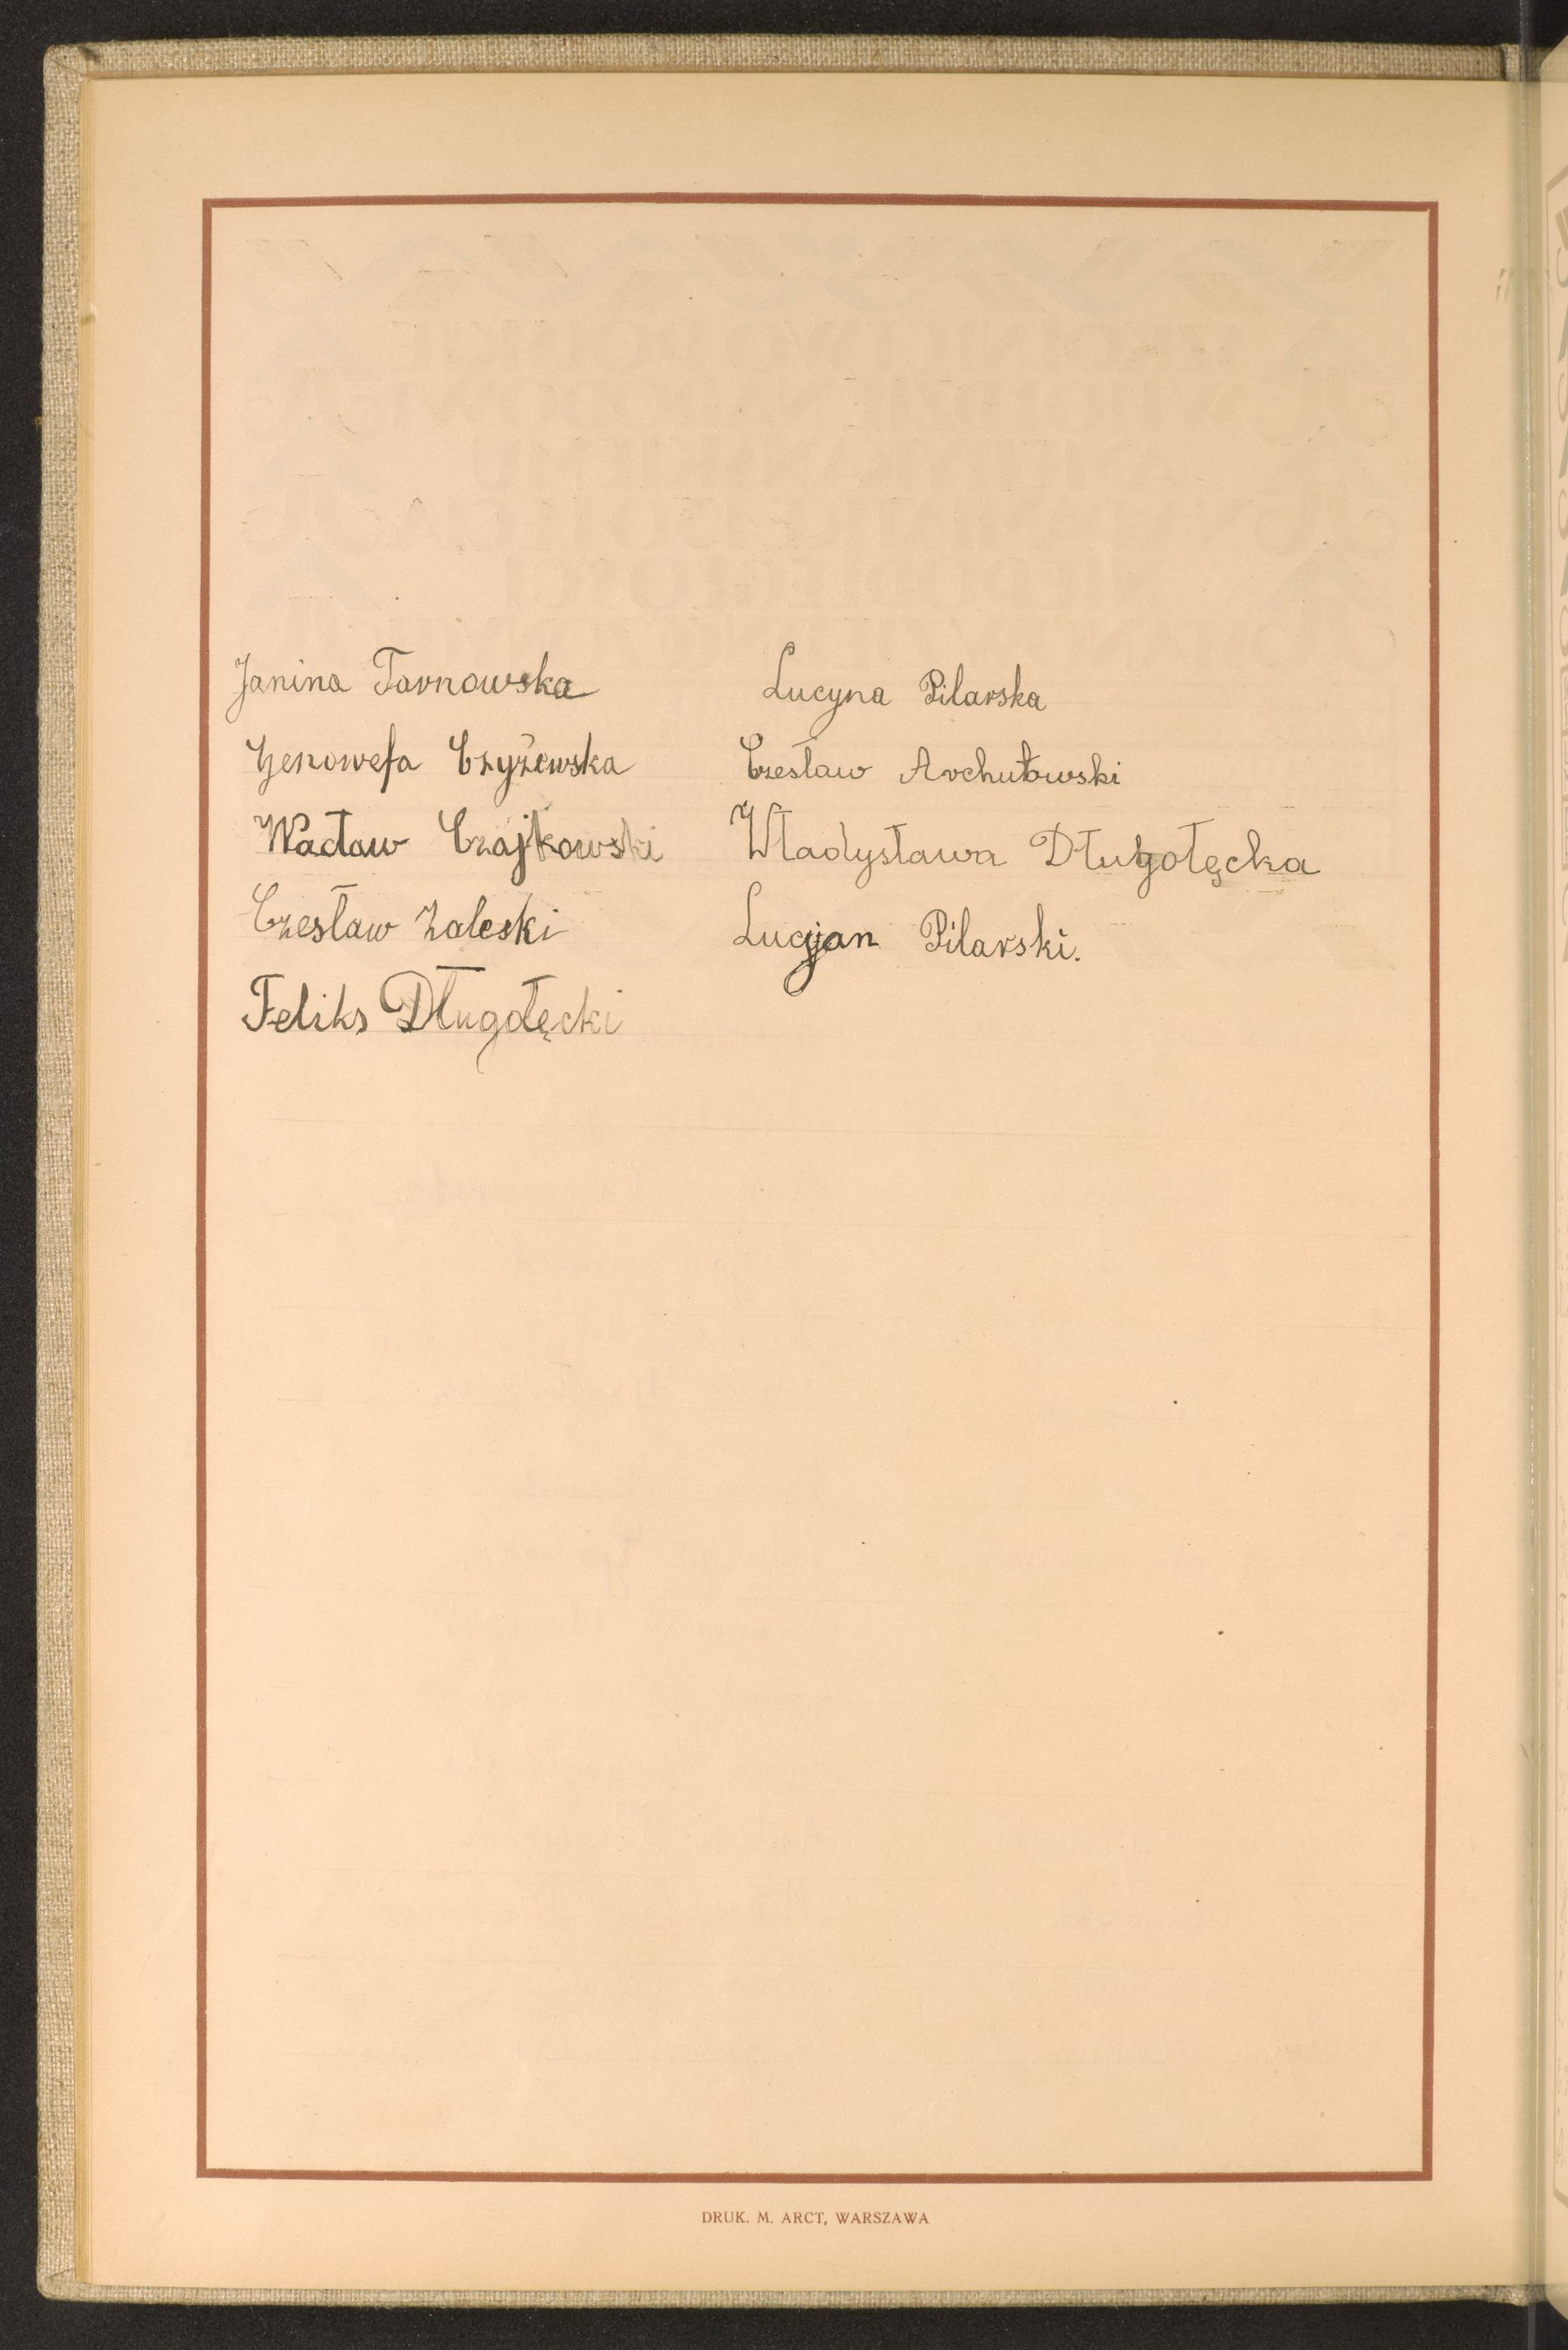 Janina Tarnowska
Genowefa Czyżewska
Wacław Czajkowski
Czesław Zaleski
Feliks Długołęcki
Lucyna Pilarska
Czesław Archutowski
Władysława Długołęcka
Lucjan Pilarski.
DRUK. M. ARCT, WARSZAWA